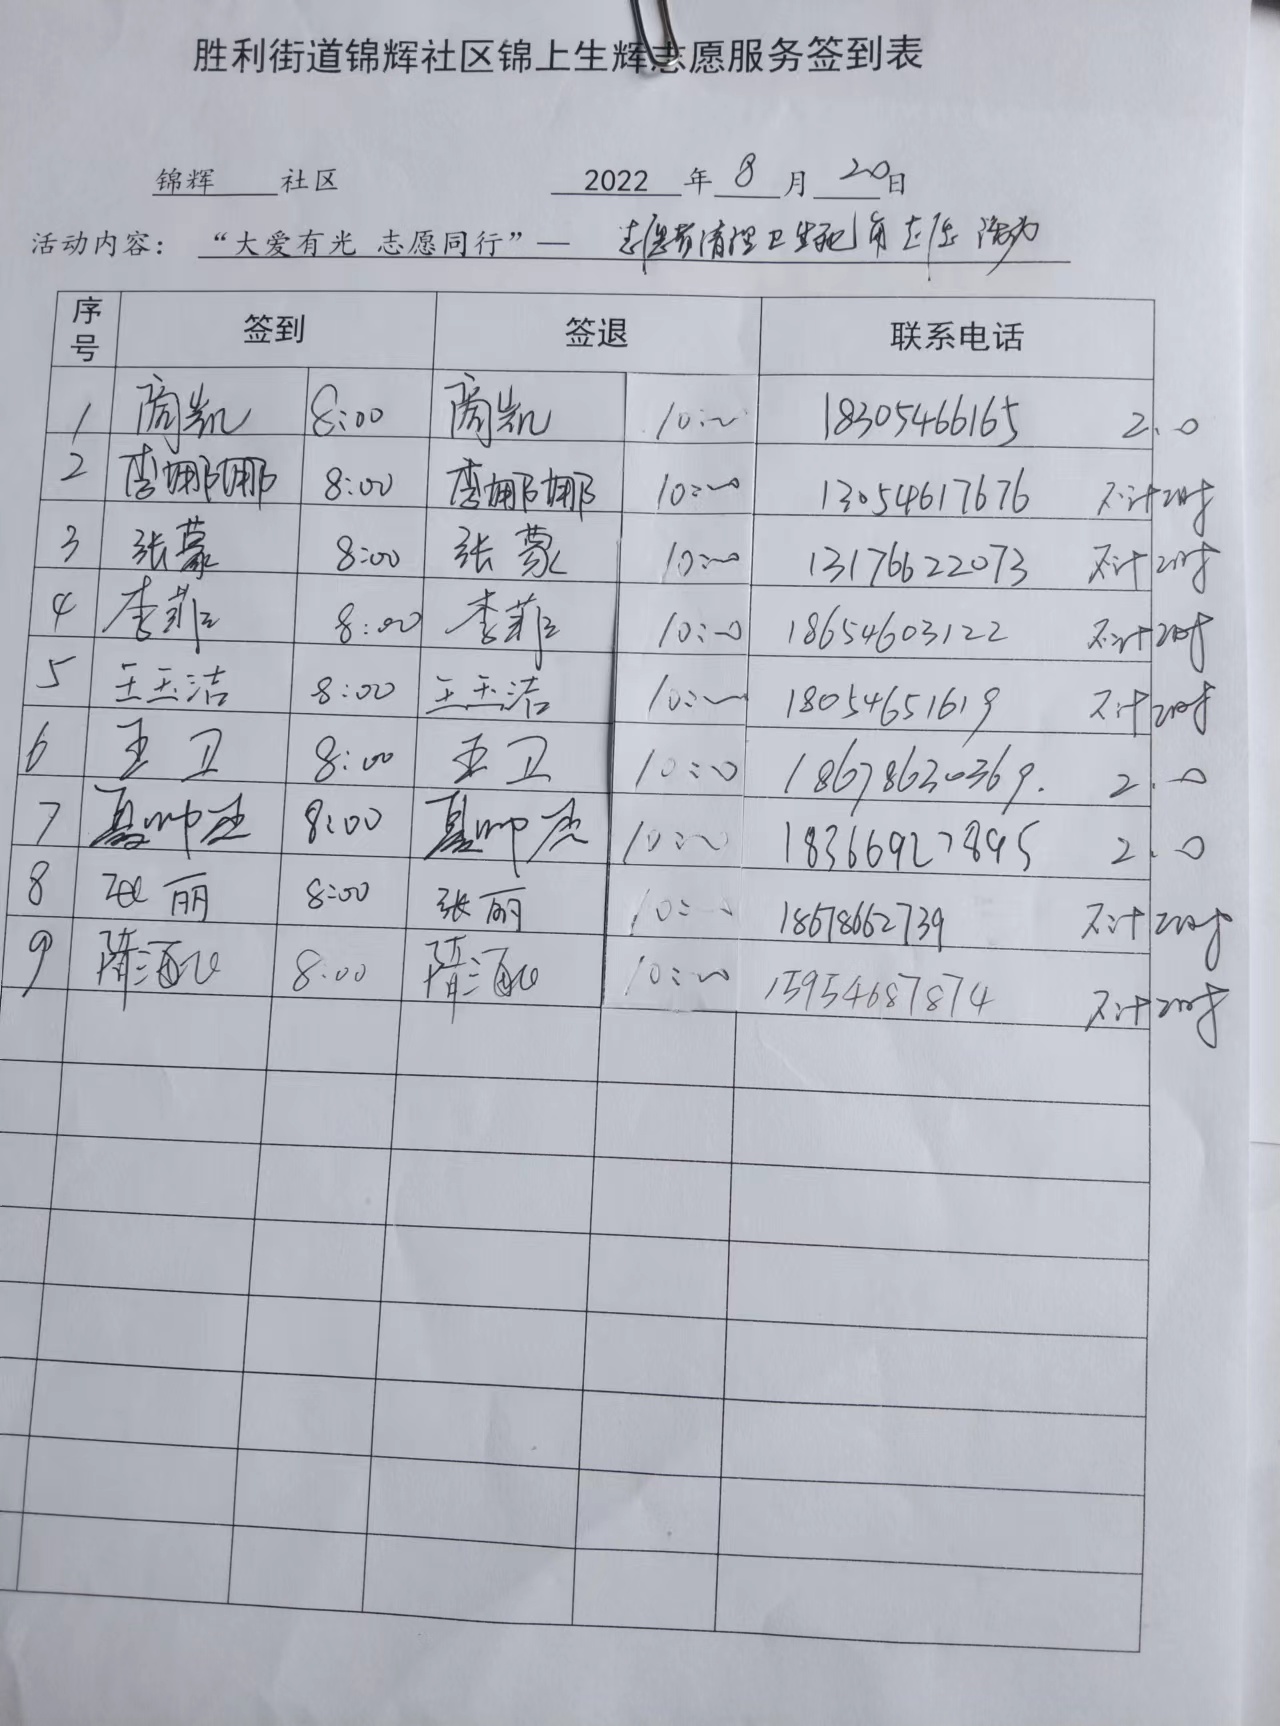 胜利街道锦辉社区锦上生辉志愿服务签到表
锦辉 社区 2022 年 8 月 20 日
活动内容： “大爱有光 志愿同行”— 志愿者清理卫生死角志愿活动
序号 签到 签退 联系电话
1 商凯 8:00 商凯 10:00 18305466165 2.0
2 李娜娜 8:00 李娜娜 10:00 13054617676 不计时
3 张蒙 8:00 张蒙 10:00 13176622073 不计时
4 李菲 8:00 李菲 10:00 18654603122 不计时
5 王玉洁 8:00 王玉洁 10:00 18054651619 不计时
6 王卫 8:00 王卫 10:00 18678630369. 2.0
7 夏帅杰 8:00 夏帅杰 10:00 18366927895 2.0
8 张丽 8:00 张丽 10:00 18678662739 不计时
9 隋 8:00 隋 10:00 15954687874 不计时